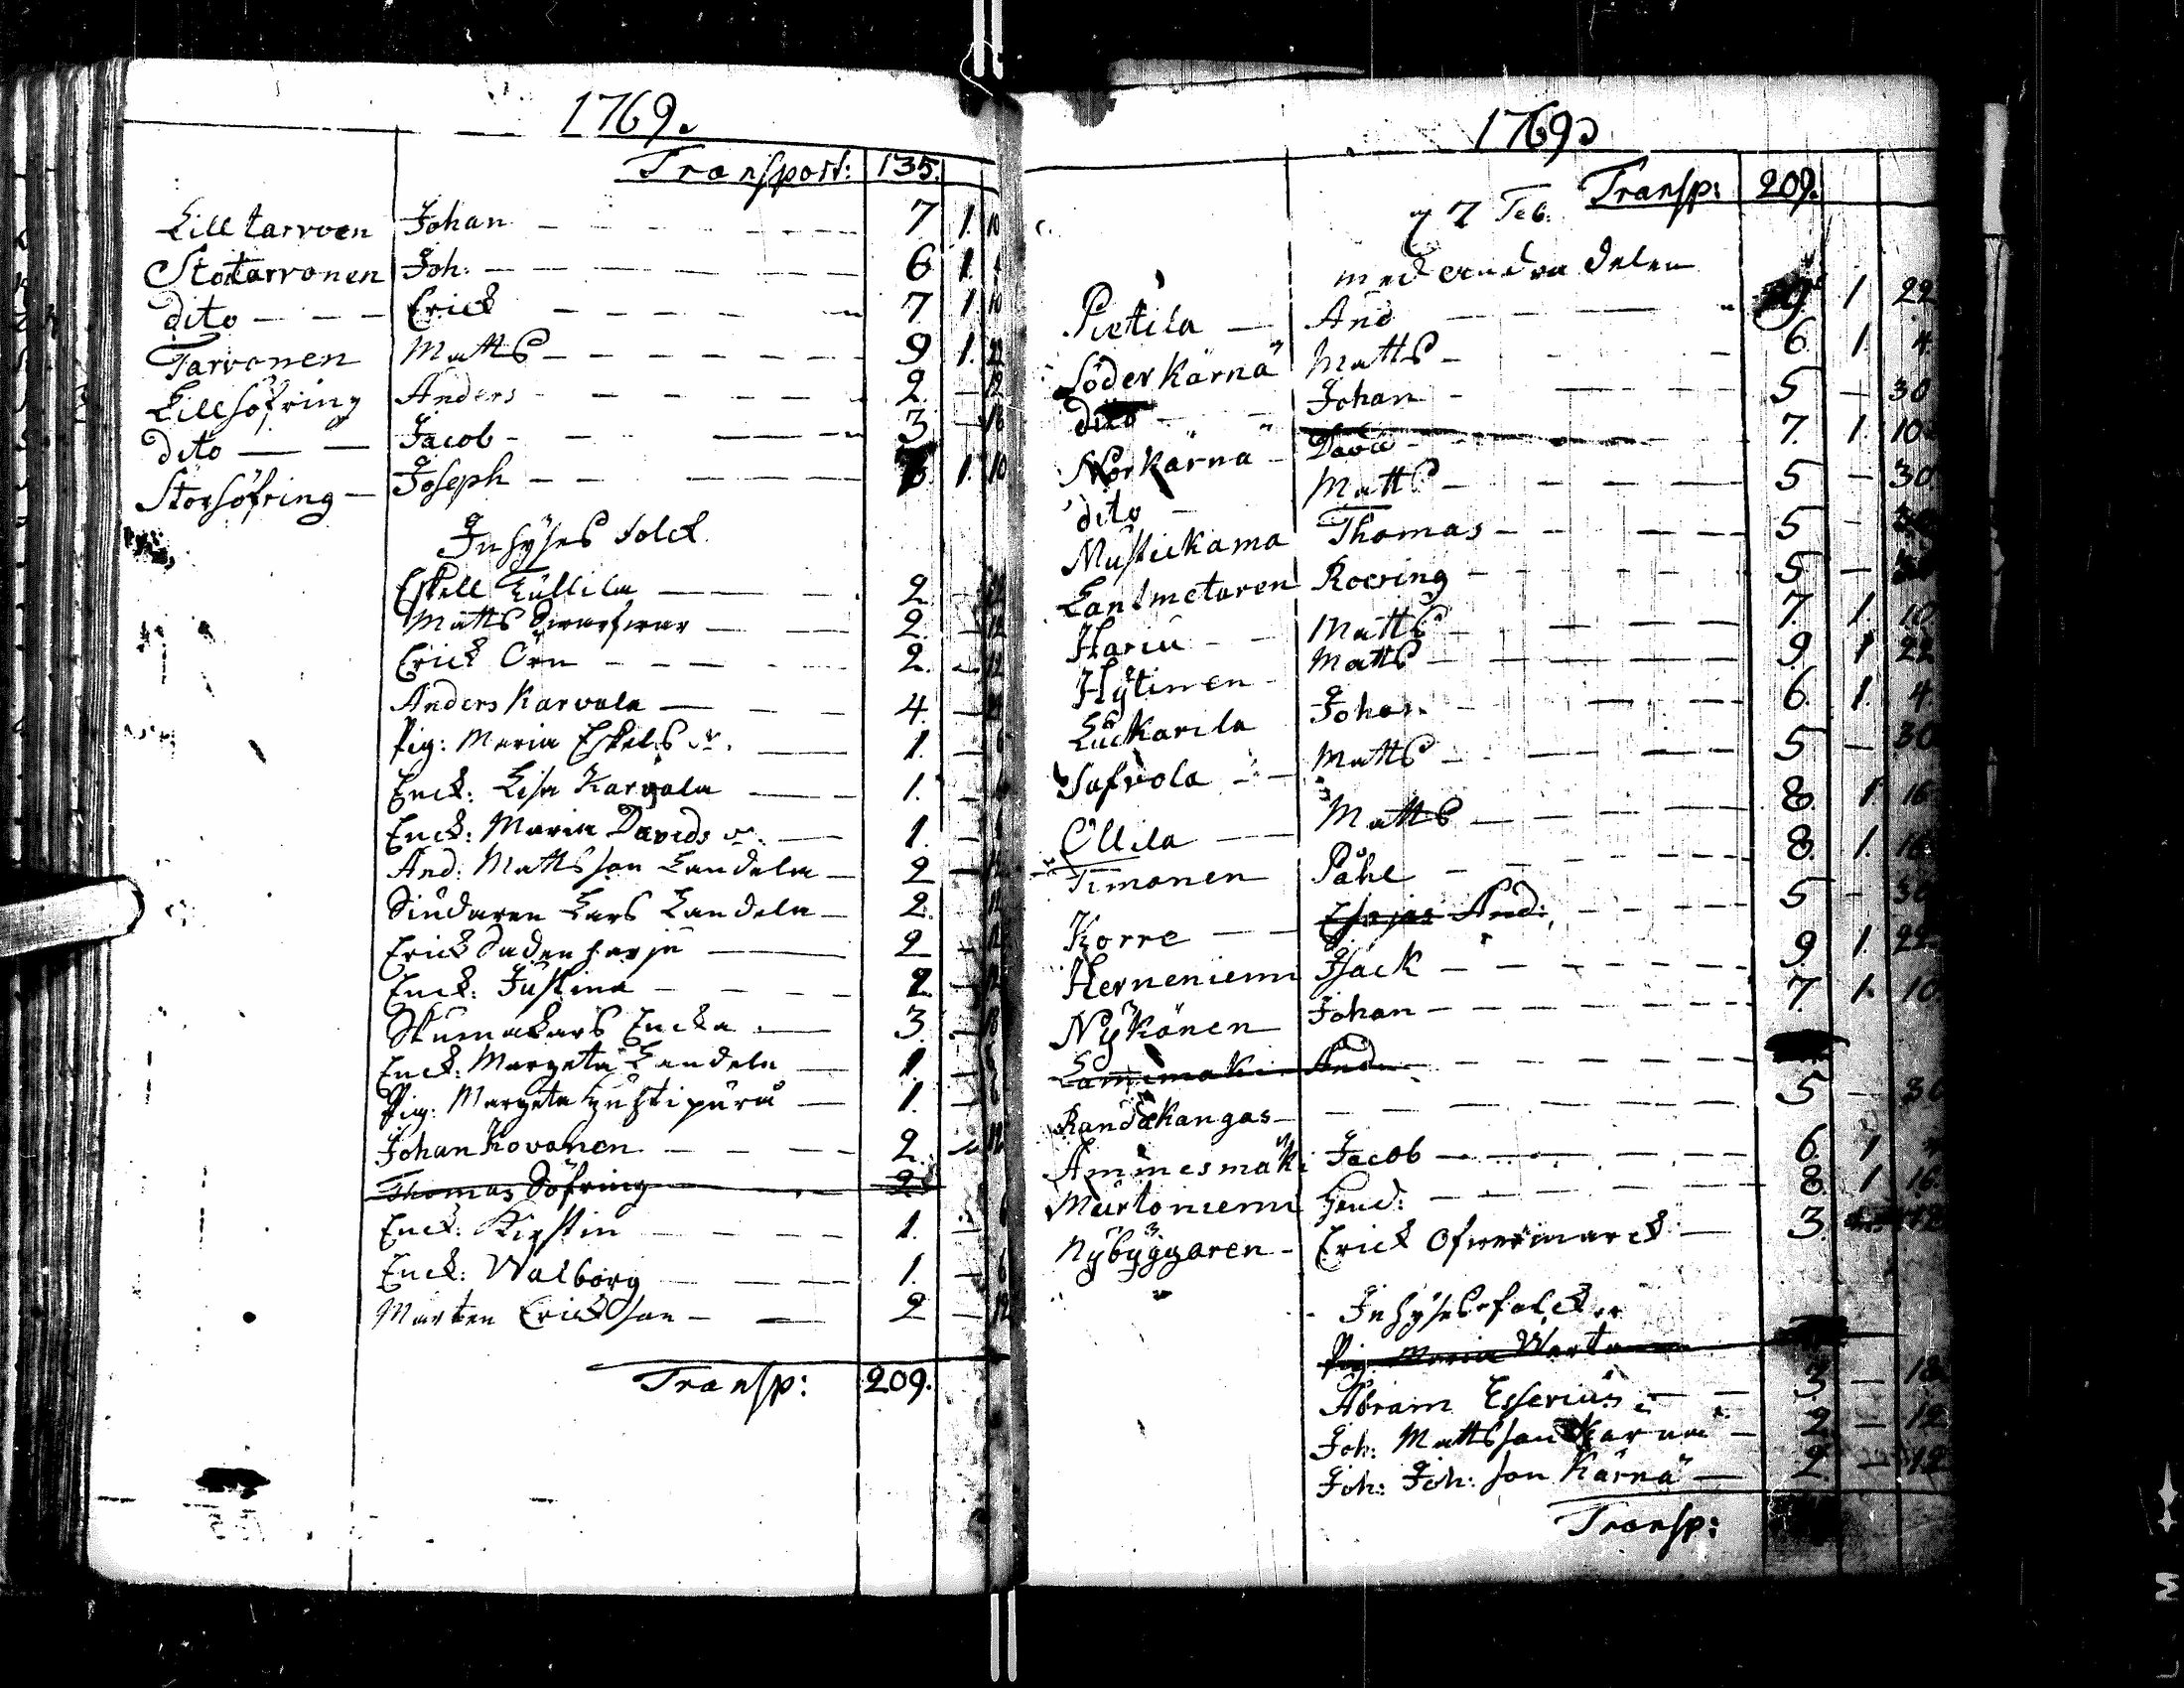 1769.
Transport: 135.
Lilltarvoen Johan 7 1. 10
Stortarvonen Joh: 6 1. 4
dito Erick 7 1. 10
Tarvonen Matts 9 1. 22
Lillsöfring Anders 2 12
dito Jacob 3 18
Storsöfring Joseph 1. 10
Inhyses folck
Eskell 2
Matts 2 12
Erick Örn 2 12
Anders Karvala 4 24
Pig: Maria Eskels dr. 1. 6
Enck: Lisa Karvala 1.
Enck: Maria Davids dr. 1. 6
And: Mattsson Landela 2 12
Lars Landela 2. 12
Erick 2 12
Enck: Justina 2 12
Skumakars Encka 3. 18
Enck: Margeta Landela 1. 6
Pig: Margeta 1. 6
Johan Kovanen 2. 12
Thomas Söfring 2
Enck: Kirstin 1. 6
Enck: Walborg 1. 6
Marten Erickson 2 12
Transp: 209.
1769
Transp: 209.
7 Feb.
med andra delen
Pietila And 9 1 22
Söderkärnä Matts 6 1. 4
dito Johan 5 30
Norkärnä David 7. 1. 10
dito Matts 5 30
Mustickama Thomas 5 30
Lantmetaren Roering 5
Hariu Matts 7. 1. 10
Hÿtinen Matts 9 1 22
Luckarila Johan 6. 1. 4
Safvola Matts 5 30
Ollila Matts 8 1 16
Timonen Påhl 8. 1. 16
Korre Esajas And: 5 30
Herneniemi Isack 9 1. 22
Nÿkänen Johan 7. 1. 10.
Lammimaki And
Randakangas 5 30
Ammesmäki Jacob 6. 1 4
Murtoniemi Hend: 8. 1 16
Nÿbÿggaren Erick Ofvermarck 3. 18
Inhyses folcker
Pig Maria
Abram Esserius 3 18
Joh: Mattsson Kärnä 2 12
Joh: Joh:son Kärnä 2. 12
Transp: